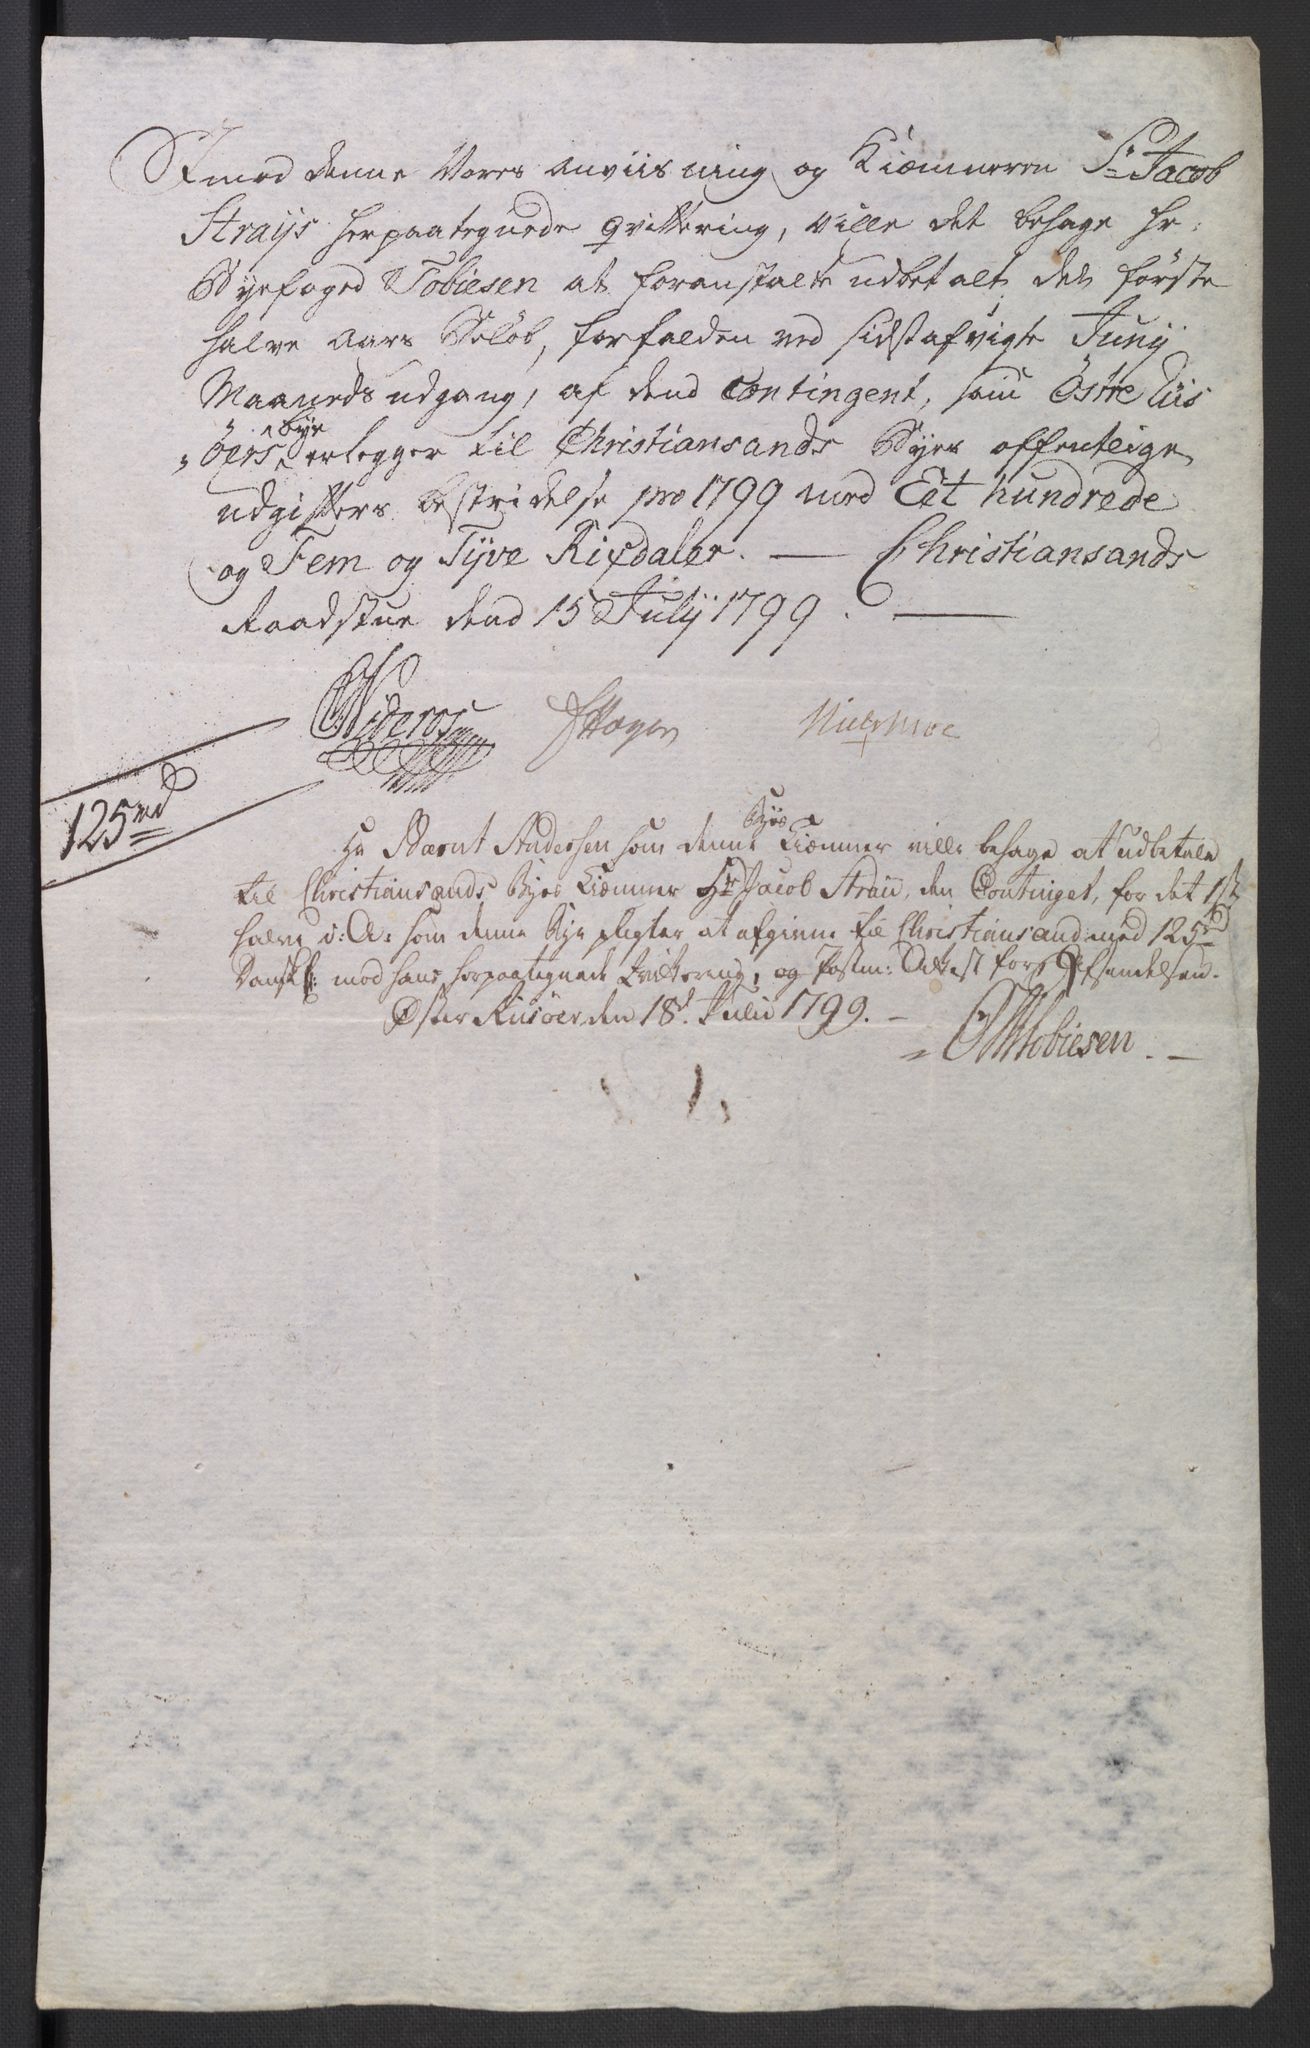 Imod denne Vores anviisning og Kiæmneren Sr Jacob
Strays herpaategnede qvittering, ville det behage Hr:
Byefoged Tobiesen at foranstalte udbetalt det første
halve Aars Beløb, forfalden ved sidstafvigte Junij
Maaneds udgang, af dend Contingent, som Östre Riis
öers Bye erlegger til Christiansands Byes offentlige
udgifters bestridelse pro 1799 med Eet hundrede
og Fem og Tyve Rixdaler. — Christiansands
Raadstue dend 15 Julij 1799. —
Nideros Hagen Niels Moe
125 rd
Hr Bærnt Andersen som denne Byes Kiæmner ville behage at udbetale
til Christiansands Byes Kiæmner Hr Jacob Strai, den Continget, for det 1ste
halve i: A: som denne Bye pligter at afgive til Christiansand med 125 rd
Dansk C: mod hans herpaategnede Qvittering, og Postm: Attest for Afsendelsen.
Øster Riisöer den 18d Julii 1799. —
Tobiesen. —